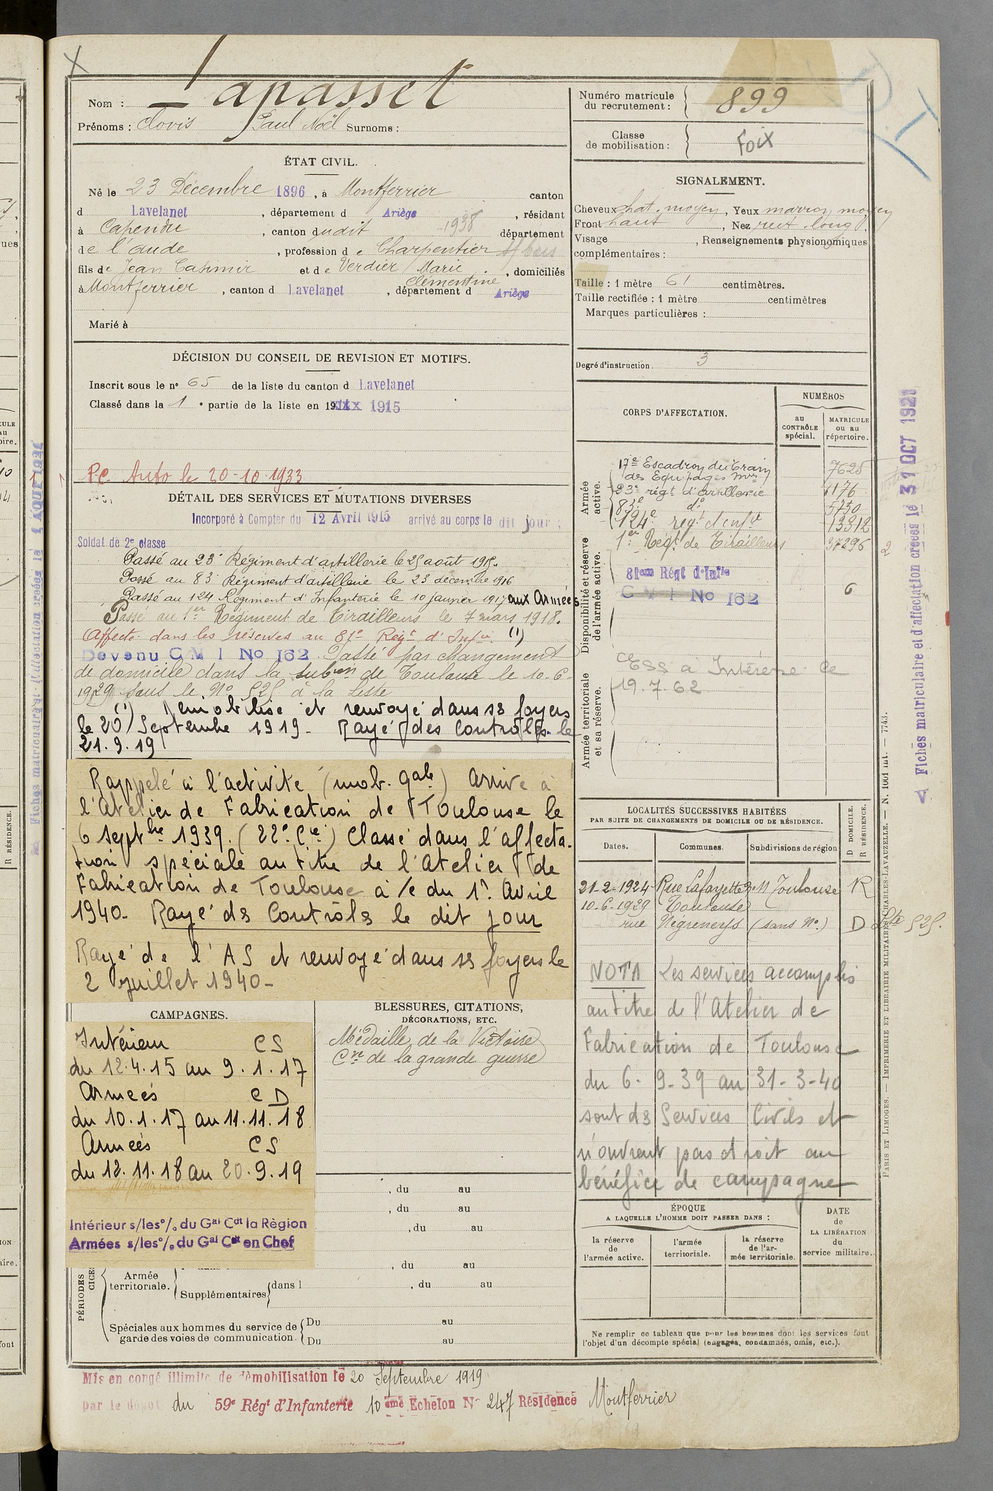 Nom : Lapasset
Prénoms : Clovis Paul Noël Surnoms :
ÉTAT CIVIL.
Né le 23 Décembre 1896, à Montferrier canton
d Lavelanet, département d Ariège, résidant
à Capendu, canton dudit 1938 département
de l'Aude, profession de Charpentier
fils de Jean Casimir et de Verdier Marie
Clémentine, domiciliés
à Montferrier, canton d Lavelanet, département d Ariège
Marié à
DÉCISION DU CONSEIL DE REVISION ET MOTIFS.
Inscrit sous le n° 65 de la liste du canton d Lavelanet
Classé dans la 1e partie de la liste en 1915
P.C. Auto le 20-10-1933
DÉTAIL DES SERVICES ET MUTATIONS DIVERSES
Incorporé à Compter du 12 Avril 1915 arrivé au corps le dit jour
Soldat de 2e classe
Passé au 23e Régiment d'artillerie le 25 août 1915.
Passé au 83e Régiment d'artillerie le 23 décembre 1916
Passé au 124 Régiment d'Infanterie le 10 janvier 1917 aux Armées
Passé au 1er Régiment de Tirailleurs le 7 mars 1918.
Affecté dans les réserves au 81e Régt d'Infie (1)
Devenu C M I No 162 Passé par changement
de domicile dans la subon de Toulouse le 10-6-
1929 sous le No 525 à la liste
(1) Démobilisé et renvoyé dans ss foyers
le 20 Septembre 1919- Rayé des Contrôles le
21.9.19
Rappelé à l'activité (mob. gale) Arrivé à
l'Atelier de Fabrication de Toulouse le
6 septbre 1939. (22e Cie) Classé dans l'affecta-
tion spéciale au titre de l'Atelier de
Fabrication de Toulouse à /c du 1er Avril
1940- Rayé ds Contrôls le dit jour
Rayé de l'AS et renvoyé dans ss foyers le
2 juillet 1940-
CAMPAGNES.
Intérieur CS
du 12.4.15 au 9.1.17
Armées CD
du 10.1.17 au 11.11.18
Armées CS
du 12.11.18 au 20.9.19
Intérieur s/les°/. du Gal Cdt la Région
Armées s/les°/. du Gal Cdt en Chef
BLESSURES, CITATIONS,
DÉCORATIONS, ETC.
Médaille de la Victoire
Cve de la grande guerre
, du au
, du au
, du au
, du au
PÉRIODES
Armée territoriale.
Supplémentaires dans l , du au
Spéciales aux hommes du service de garde des voies de communication.
Du au
Du au
Mis en congé illimité de démobilisation le 20 Septembre 1919
par le dépôt du 59e Régt d'Infanterie 10eme Echelon N° 247 Résidence Montferrier
Numéro matricule du recrutement : 899
Classe de mobilisation : Foix
SIGNALEMENT.
Cheveux chat. moyen, Yeux marron moyen
Front haut, Nez rect. long
Visage , Renseignements physionomiques
complémentaires :
Taille : 1 mètre 61 centimètres.
Taille rectifiée : 1 mètre centimètres
Marques particulières :
Degré d'instruction 3
CORPS D'AFFECTATION.
NUMÉROS
au CONTRÔLE spécial.
MATRICULE ou au répertoire.
Armée active.
17e Escadron du Train
des Equipages mres 7625
23e régt d'artillerie 6176
83e do 5750
124e régt d'infie 13312
1er Régt de Tirailleurs 37296
Disponibilité et réserve de l'armée active.
81eme Régt d'Infie
C M I No 162 6
Armée territoriale et sa réserve.
Cess à Intéressé le
19.7.62
LOCALITÉS SUCCESSIVES HABITÉES
PAR SUITE DE CHANGEMENTS DE DOMICILE OU DE RÉSIDENCE.
Dates. Communes. Subdivisions de région
D DOMICILE. R RÉSIDENCE.
21-2-1924 Rue Lafayette Toulouse R
10-6-1929 Toulouse
rue Négreneys (sans No.) D Lste 525.
NOTA Les services accomplis
au titre de l'Atelier de
Fabrication de Toulouse
du 6-9-39 au 31-3-40
sont ds Services Civils et
n'ouvrent pas droit au
bénéfice de campagne
ÉPOQUE
A LAQUELLE L'HOMME DOIT PASSER DANS :
la réserve de l'armée active.
l'armée territoriale.
la réserve de l'armée territoriale.
DATE de LA LIBÉRATION du service militaire.
Ne remplir ce tableau que pour les hommes dont les services font
l'objet d'un décompte spécial (engagés, condamnés, omis, etc.).
Fiches matriculaire et d'affectation créées le 31 OCT 1921
PARIS ET LIMOGES. — IMPRIMERIE ET LIBRAIRIE MILITAIRE CHARLES-LAVAUZELLE.